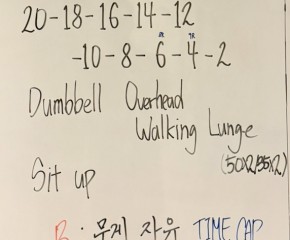 20-18-16-14-12
-10-8-6-4-2
Dumbbell Overhead
Walking Lunge
(50x2/35x2)
Sit up
B. 무게 자유 TIME CAP